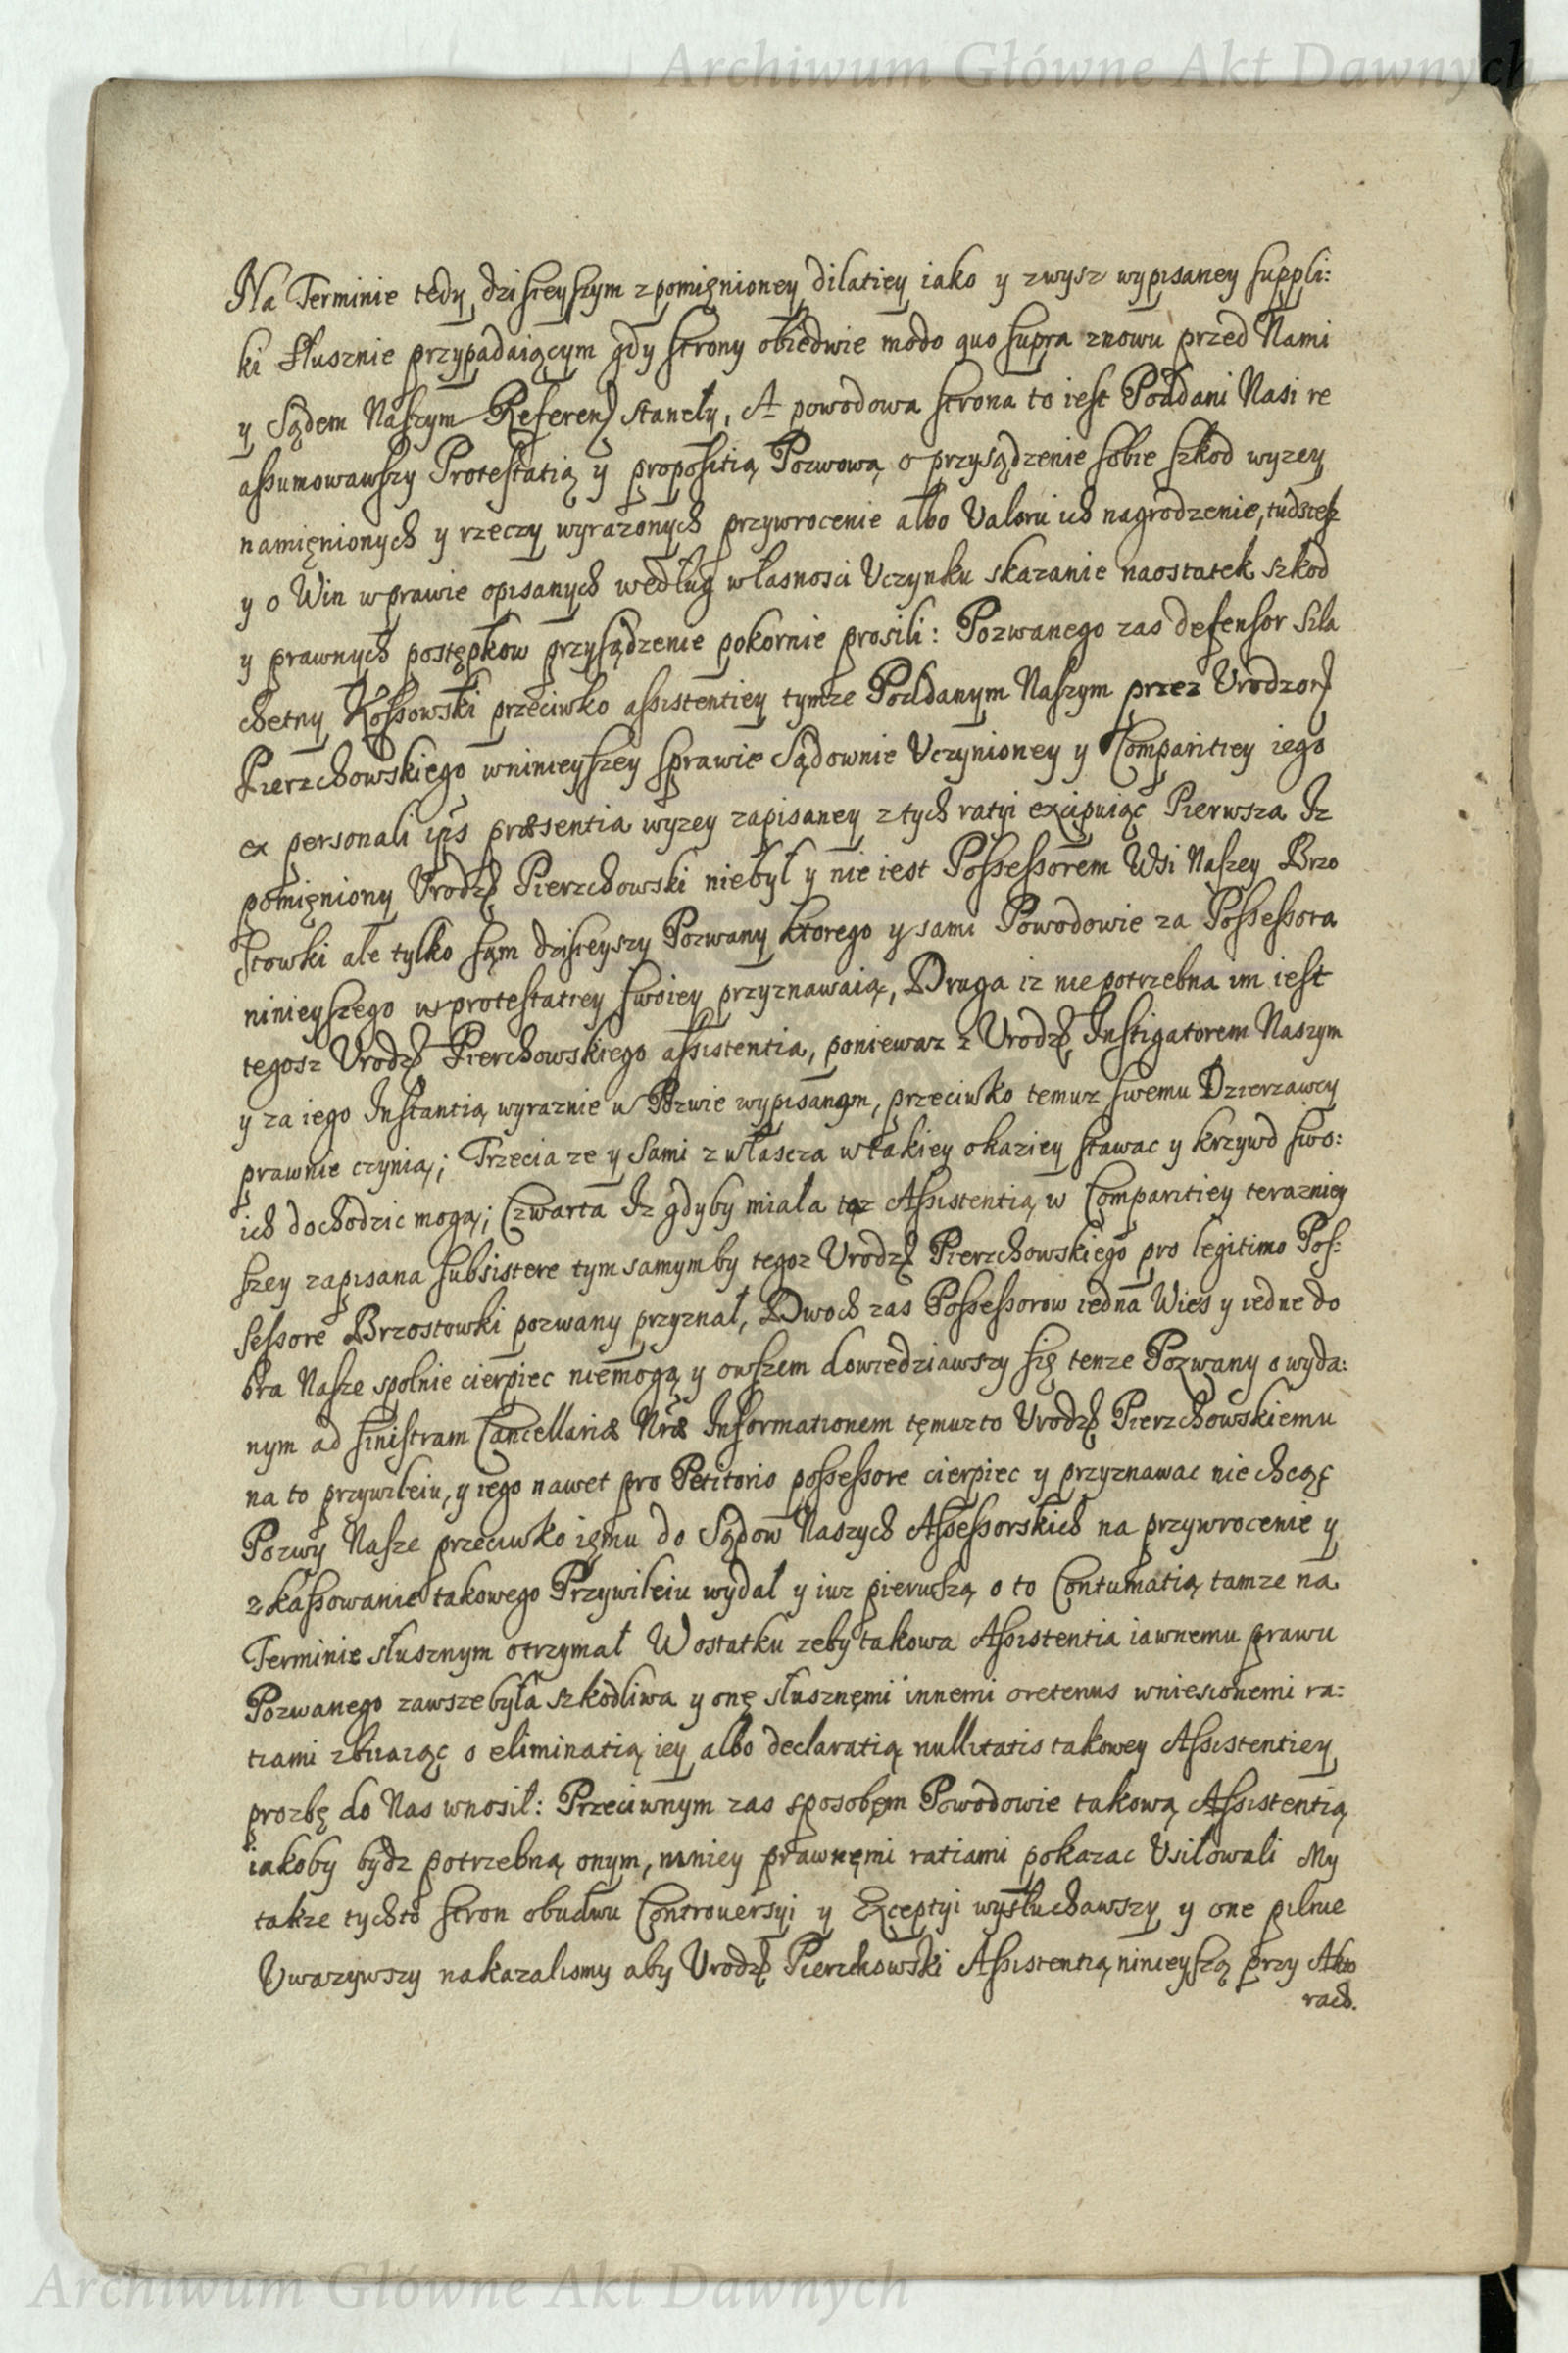 Archiwum Główne Akt Dawnych
Na Terminie tedy dzisieyszym z pomięnioney dilatiey iako y zwysz wypisaney suppli:
ki słusznie przypadaiącym gdy strony obiedwie modo quo supra znowu przed Nami
y Sądem Naszym Referen stanęły, A powodowa strona to iest Poddani Nasi re
assumowawszy Protestatią y propositią Pozwową o przysądzenie sobie szkod wyzey
namięnionych y rzeczy wyrazonych przywrocenie albo Valoru ich nagrodzenie, tudziesz
y o Win w prawie opisanych według własnosci Vczynku skazanie naostatek szkod
y prawnych postępkow przysądzenie pokornie prosili: Pozwanego zas defensor Szla
chetny Kossowski przeciwko assistentiey tymze Poddanym Naszym przez Vrodzon
Pierzchowskiego w ninieyszey sprawie Sądownie Vczynioney y Comparitiey iego
ex personali ips præsentia wyzey zapisaney z tych ratyi excipuiąc Pierwsza Iz
pomięniony Vrodz Pierzchowski niebył y nie iest Possessorem Wsi Naszey Brzo
stowki ale tylko sąm dzisieyszy Pozwany ktorego y sami Powodowie za Possessora
ninieyszego w protestatiey swoiey przyznawaią, Druga iz niepotrzebna im iest
tegosz Vrodz Pierchowskiego assistentia, poniewaz z Vrodz Instigatorem Naszym
y za iego Instantią wyraznie w Pozwie wypisanym, przeciwko temuz swemu Dzierzawcy
prawnie czynią; Trzecia ze y sami zwłascza w takiey okaziey stawac y krzywd swo:
ich dochodzic mogą; Czwarta Iz gdyby miała taz Assistentią w Comparitiey terazniey
szey zapisana subsistere tym samym by tegoz Vrodz Pierzchowskiego pro legitimo Pos:
sessore Brzostowki pozwany przyznał, Dwoch zas Possessorow iedna Wies y iedne do
bra Nasze spolnie cierpiec niemogą y owszem dowiedziawszy się tenze Pozwany o wyda:
nym ad sinistram Cancellariæ Nræ Informationem tęmuzto Vrodz Pierzchowskiemu
na to przywileiu, y iego nawet pro Petitorio possessore cierpiec y przyznawac nie chcąc
Pozwy Nasze przeciwko ięmu do Sądow Naszych Assessorskich na przywrocenie y
zkassowanie takowego Przywileiu wydał y iuz pierwszą o to Contumatią tamze na
Terminie słusznym otrzymał W ostatku zeby takowa Assistentia iawnemu prawu
Pozwanego zawsze była szkodliwa y onę słusznęmi innemi oretenus wniesionemi ra:
tiami zbiiaiąc o eliminatią iey albo declaratią nullitatis takowey Assistentiey
prozbę do Nas wnosił: Przeciwnym zas sposobęm Powodowie takową Assistentią
iakoby bydz potrzebną onym, mniey prawnęmi ratiami pokazac Vsiłowali My
takze tychto stron obudwu Controuersyi y Exceptyi wysłuchawszy y one pilnie
Vwazywszy nakazalismy aby Vrodz Pierzchowski Assistentią ninieyszą przy Akto
rach.
Archiwum Główne Akt Dawnych